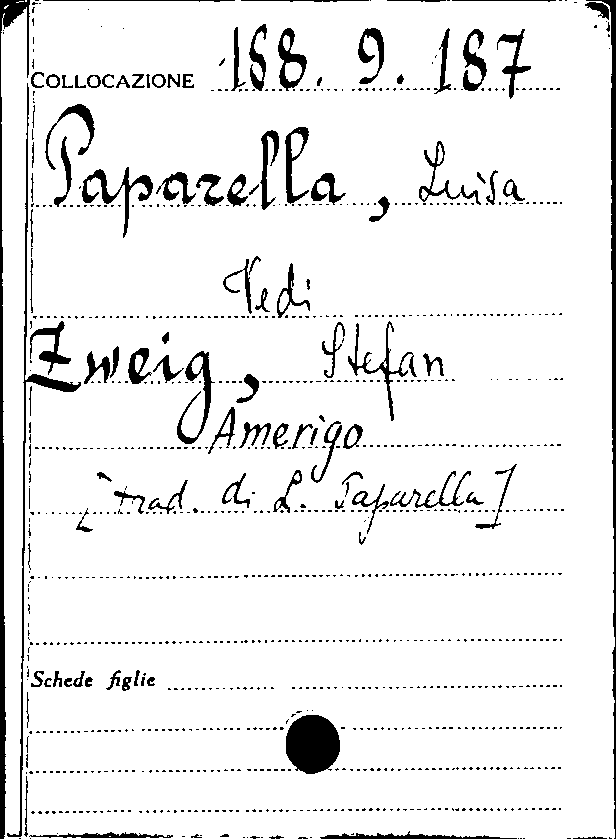 COLLOCAZIONE 168. 9. 187
Paparella, Luisa
Vedi
Zweig, Stefan
Amerigo
[trad. di L. Paparella]
Schede figlie